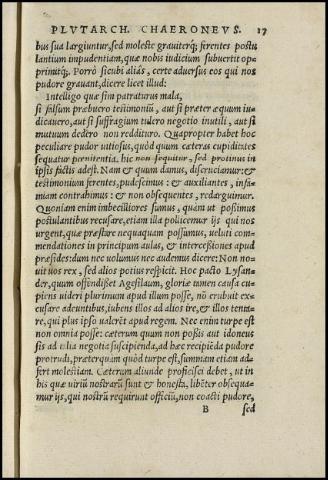 PLVTARCH. CHAERONEVS. 17
bus sua largiuntur, sed moleste grauiterq́; ferentes postu
lantium inpudentiam, quæ nobis iudicium subuertit op-
primitq́;. Porrò sicubi aliâs, certe aduersus eos qui nos
pudore grauant, dicere licet illud:
Intelligo quæ sim patraturus mala,
si falsum præbuero testimoniũ, aut si præter æquum iu-
dicauero, aut si suffragium tulero negotio inutili, aut si
mutuum dedero non reddituro. Quapropter habet hoc
peculiare pudor uitiosus, quòd quum cæteras cupiditates
sequatur pœnitentia, hic non sequitur, sed protinus in
ipsis factis adest. Nam & quum damus, discruciamur: &
testimonium ferentes, pudescimus: & auxiliantes, infa-
miam contrahimus: & non obsequentes, redarguimur.
Quoniam enim imbecilliores sumus, quàm ut possimus
postulantibus recusare, etiam illa pollicemur ijs qui nos
urgent, quæ præstare nequaquam possumus, ueluti com-
mendationes in principum aulas, & intercessiones apud
præsides: dum nec uolumus nec audemus dicere: Non no-
uit uos rex, sed alios potius respicit. Hoc pacto Lysan-
der, quum offendisset Agesilaum, gloriæ tamen causa cu-
piens uideri plurimum apud illum posse, nõ erubuit ex-
cusare adeuntibus, iubens illos ad alios ire, & illos tenta-
re, qui plus ipso ualerēt apud regem. Nec enim turpe est
non omnia posse: cæterum quum non possis aut idoneus
sis ad talia negotia suscipienda, ad hæc recipiẽda pudore
protrudi, præterquam quòd turpe est, summam etiam ad-
fert molestiam. Cæterum aliunde proficisci debet, ut in
his quæ uiriũ nostrarũ sunt & honesta, libẽter obsequa-
mur ijs, qui nostrũ requirunt officiũ, non coacti pudore,
B sed